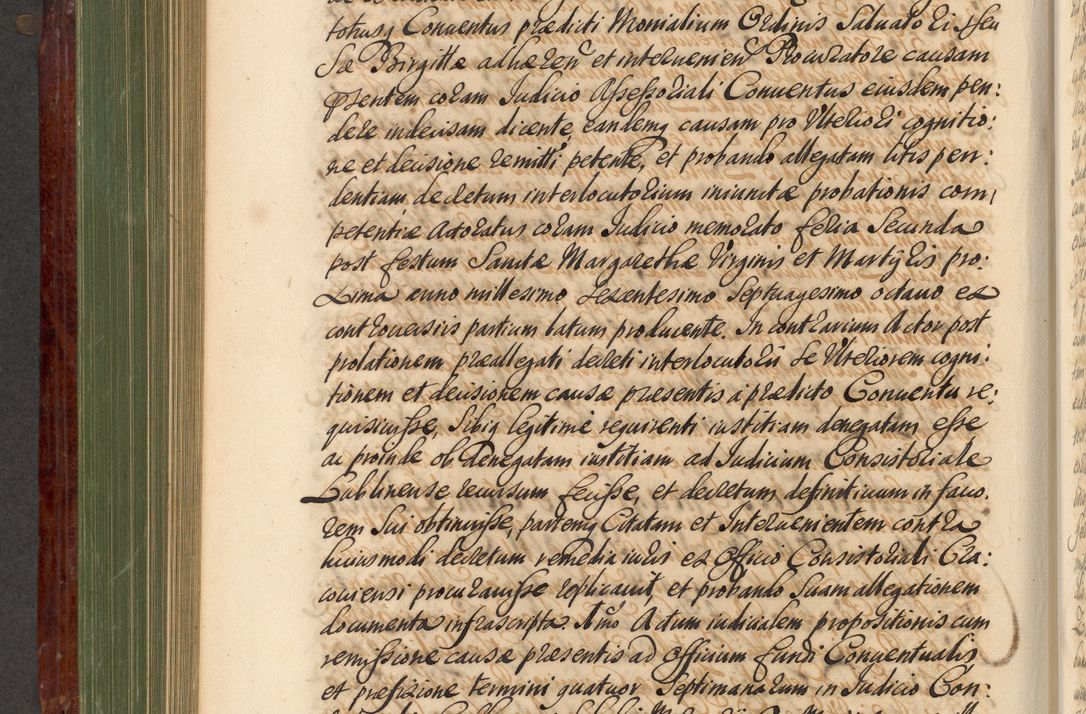 totusq Conuentus prædicti Monialium Ordinis Saluatoris seu
Sæ Birgittæ adhæren et interuenien Procuratore causam
pnsentem coram Judicio Assessoriali Conuentus eiusdem pen:
dere indecisam dicente, eandemq causam pro Ulteriori cognitio:
ne et decisione remitti petente, et probando allegatam litis pen:
dentiam decretum interlocutorium iniunctæ probationis com
petentiæ Actoratus coram Judicio memorato feria Secunda
post festum Sanctæ Margarethæ Virginis et Martyris pro:
xima anno millesimo sexcentesimo Septuagesimo octauo ex
controuersiis partium latum producente. In contrarium Actor post
prolationem præallegati decreti interlocutorii se Ulteriorem cogni:
tionem et decisionem causæ præsentis à prædicto Conuentu re:
quisiuisse, Sibiq legitimè requirenti iustitiam denegatam esse
ac proinde ob denegatam iustitiam ad Judicium Consistoriale
Lublinense recursum fecisse, et decretum definitiuum in fauo.
rem Sui obtinuisse, partemq Citatam et Interuenientem contra
huiusmodi decretum remedia iuris ex Officio Consistoriali Cra:
couiensi procurauisse replicauit, et probando Suam allegationem
documenta infrascripta. Imo Actum iudicialem propositionis cum
remissione causæ præsentis ad Officium fundi Conuentualis
et præfixione termini quatuor Septimanarum in Judicio Con: